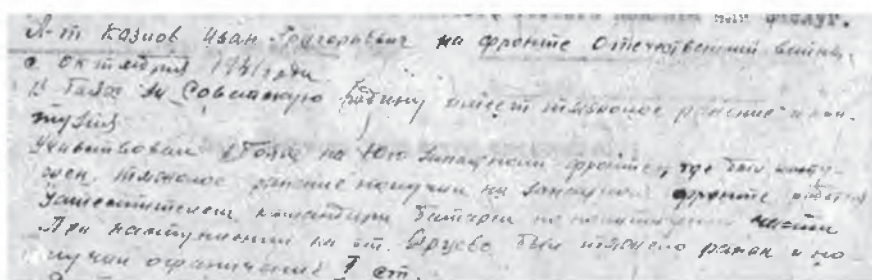 заслуг.
Л-т Казнов Иван Григорьевич на фронте Отечественной войны
с октября 1941 года
В боях за Советскую Родину имеет тяжелое ранение и кон-
тузию
Участвовал в боях на Юго Западном фронте, где был конту-
жен, тяжелое ранение получил на Западном фронте
заместителем командира батареи части
При наступлении на ст. был тяжело ранен и по
лучил ограничение I ст.